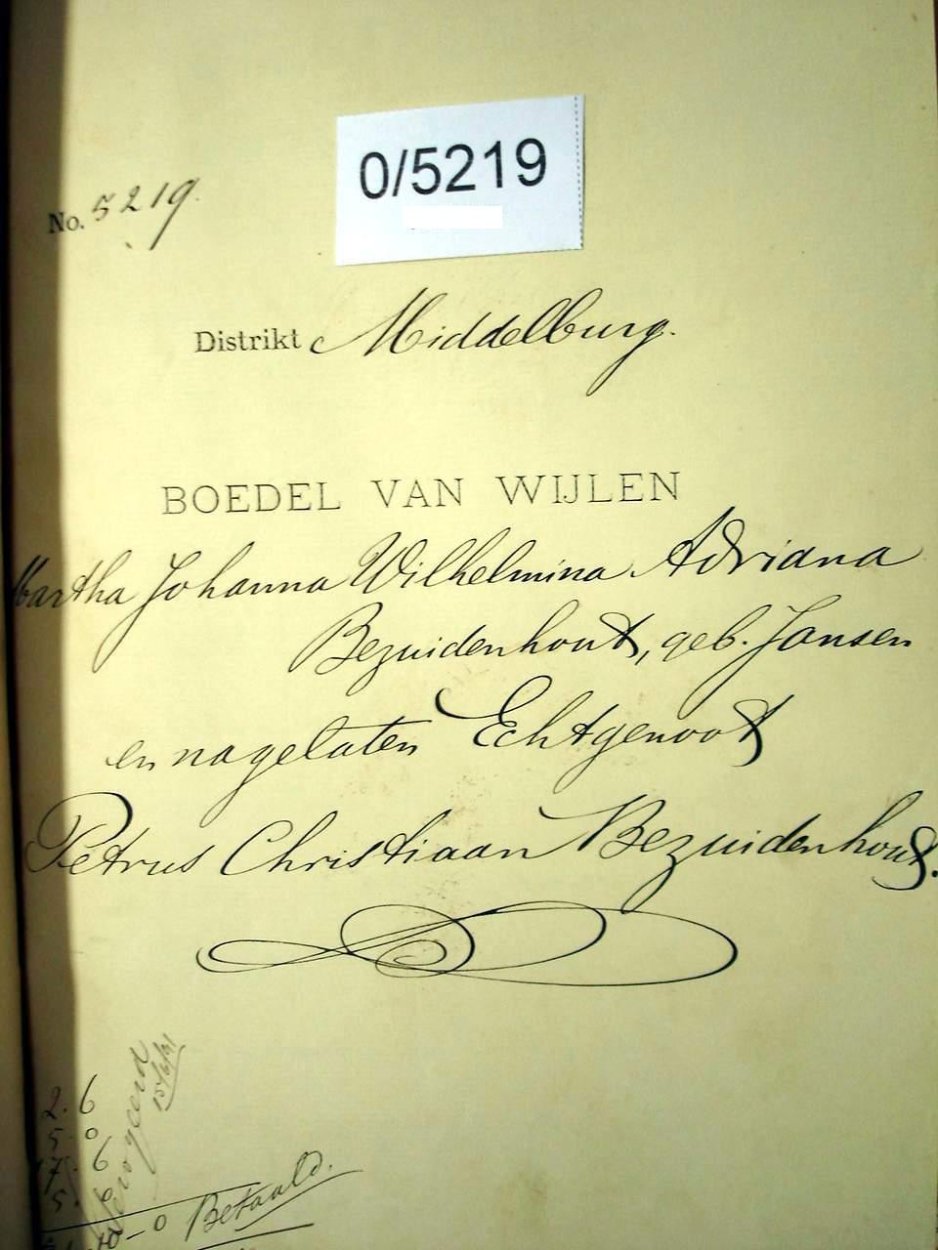 0/5219
No. 5219.
Distrikt Middelburg.
BOEDEL VAN WIJLEN
Martha Johanna Wilhelmina Adriana
Bezuidenhout, geb. Jansen
en nagelaten Echtgenoot
Petrus Christiaan Bezuidenhout.
2. 6
5 - 0
7. 6
5.
- 0 Betaald.